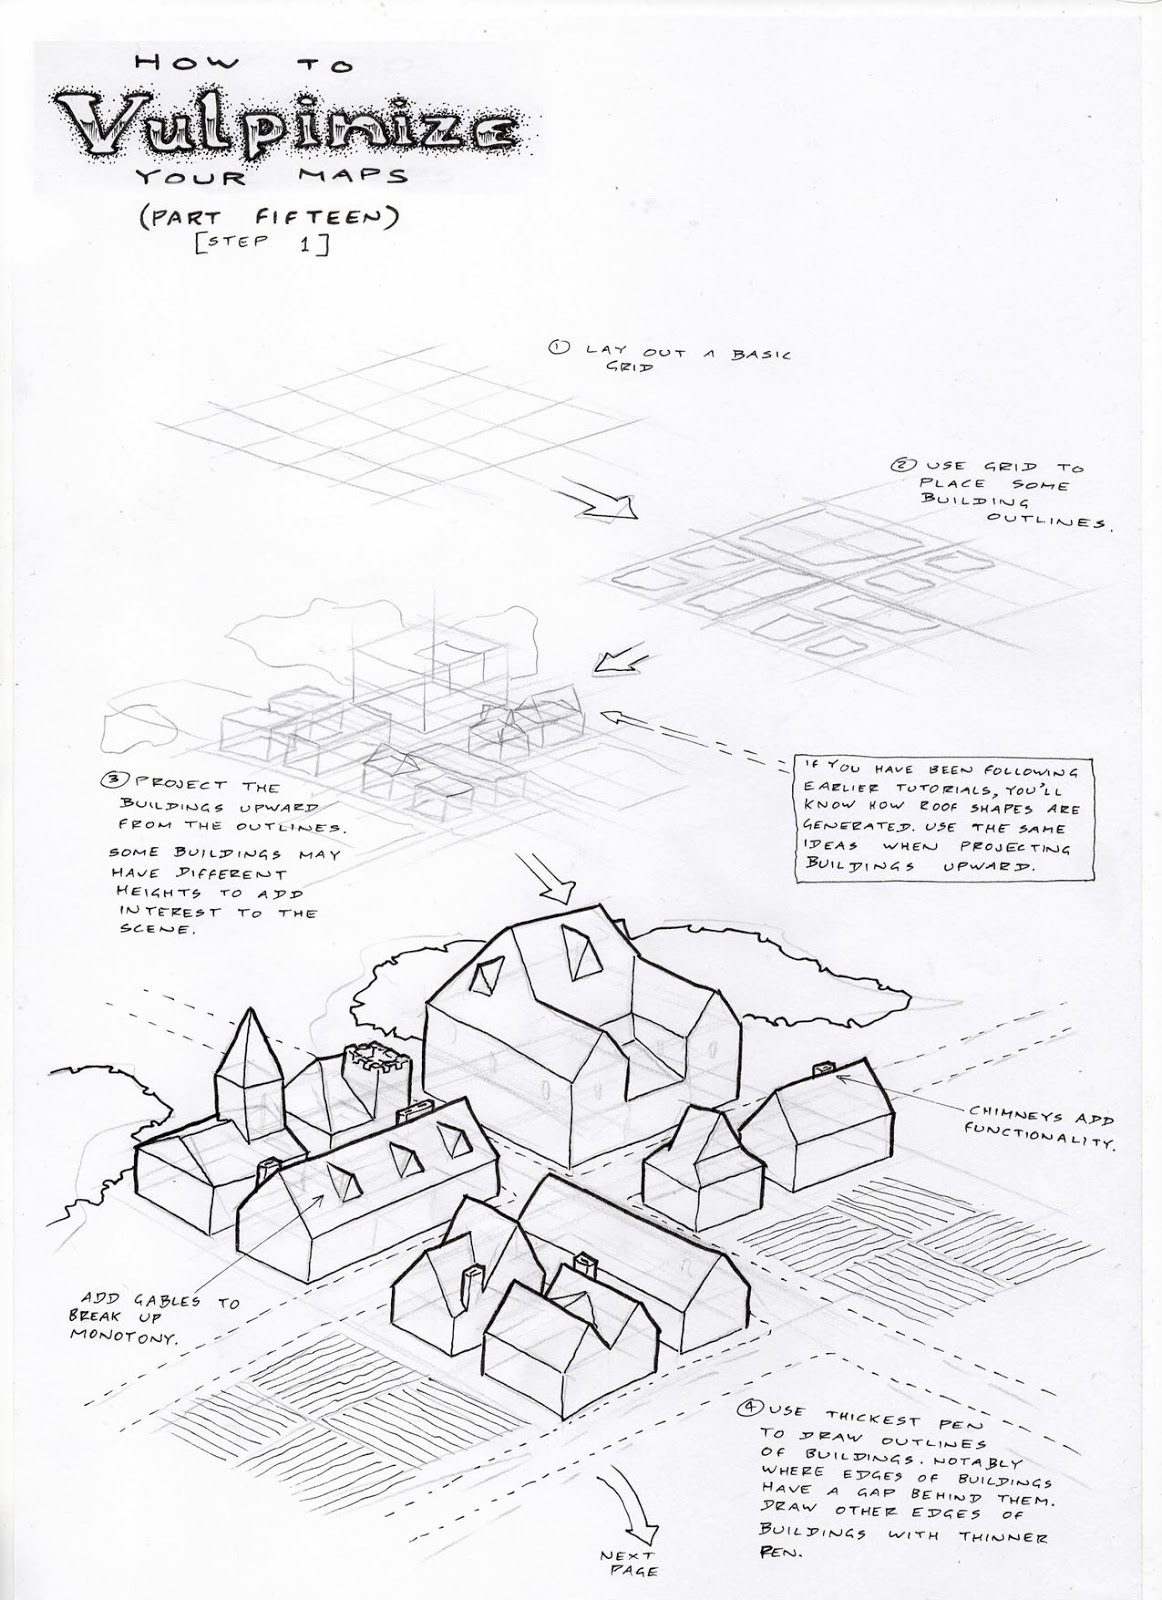 HOW TO
Vulpinize
YOUR MAPS
(PART FIFTEEN)
[STEP 1]
① LAY OUT A BASIC
GRID
② USE GRID TO
PLACE SOME
BUILDING
OUTLINES.
③ PROJECT THE
BUILDINGS UPWARD
FROM THE OUTLINES.
SOME BUILDINGS MAY
HAVE DIFFERENT
HEIGHTS TO ADD
INTEREST TO THE
SCENE.
IF YOU HAVE BEEN FOLLOWING
EARLIER TUTORIALS, YOU'LL
KNOW HOW ROOF SHAPES ARE
GENERATED. USE THE SAME
IDEAS WHEN PROJECTING
BUILDINGS UPWARD.
CHIMNEYS ADD
FUNCTIONALITY.
ADD GABLES TO
BREAK UP
MONOTONY.
④ USE THICKEST PEN
TO DRAW OUTLINES
OF BUILDINGS. NOTABLY
WHERE EDGES OF BUILDINGS
HAVE A GAP BEHIND THEM.
DRAW OTHER EDGES OF
BUILDINGS WITH THINNER
PEN.
NEXT
PAGE